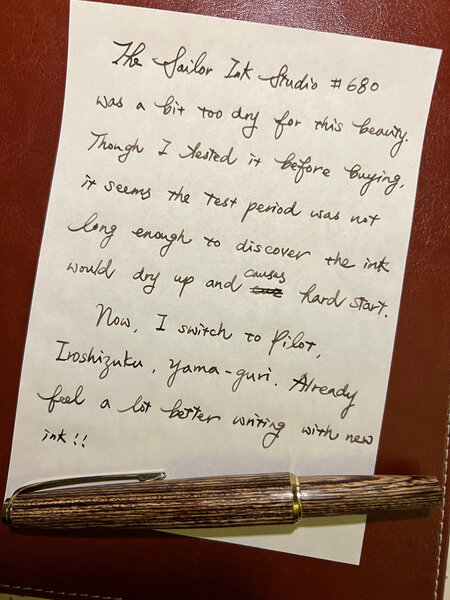 The Sailor Ink Studio #680
was a bit too dry for this beauty.
Though I tested it before buying,
it seems the test period was not
long enough to discover the ink
would dry up and causes hard start.
Now, I switch to Pilot,
Iroshizuku, Yama-guri. Already
feel a lot better writing with new
ink!!